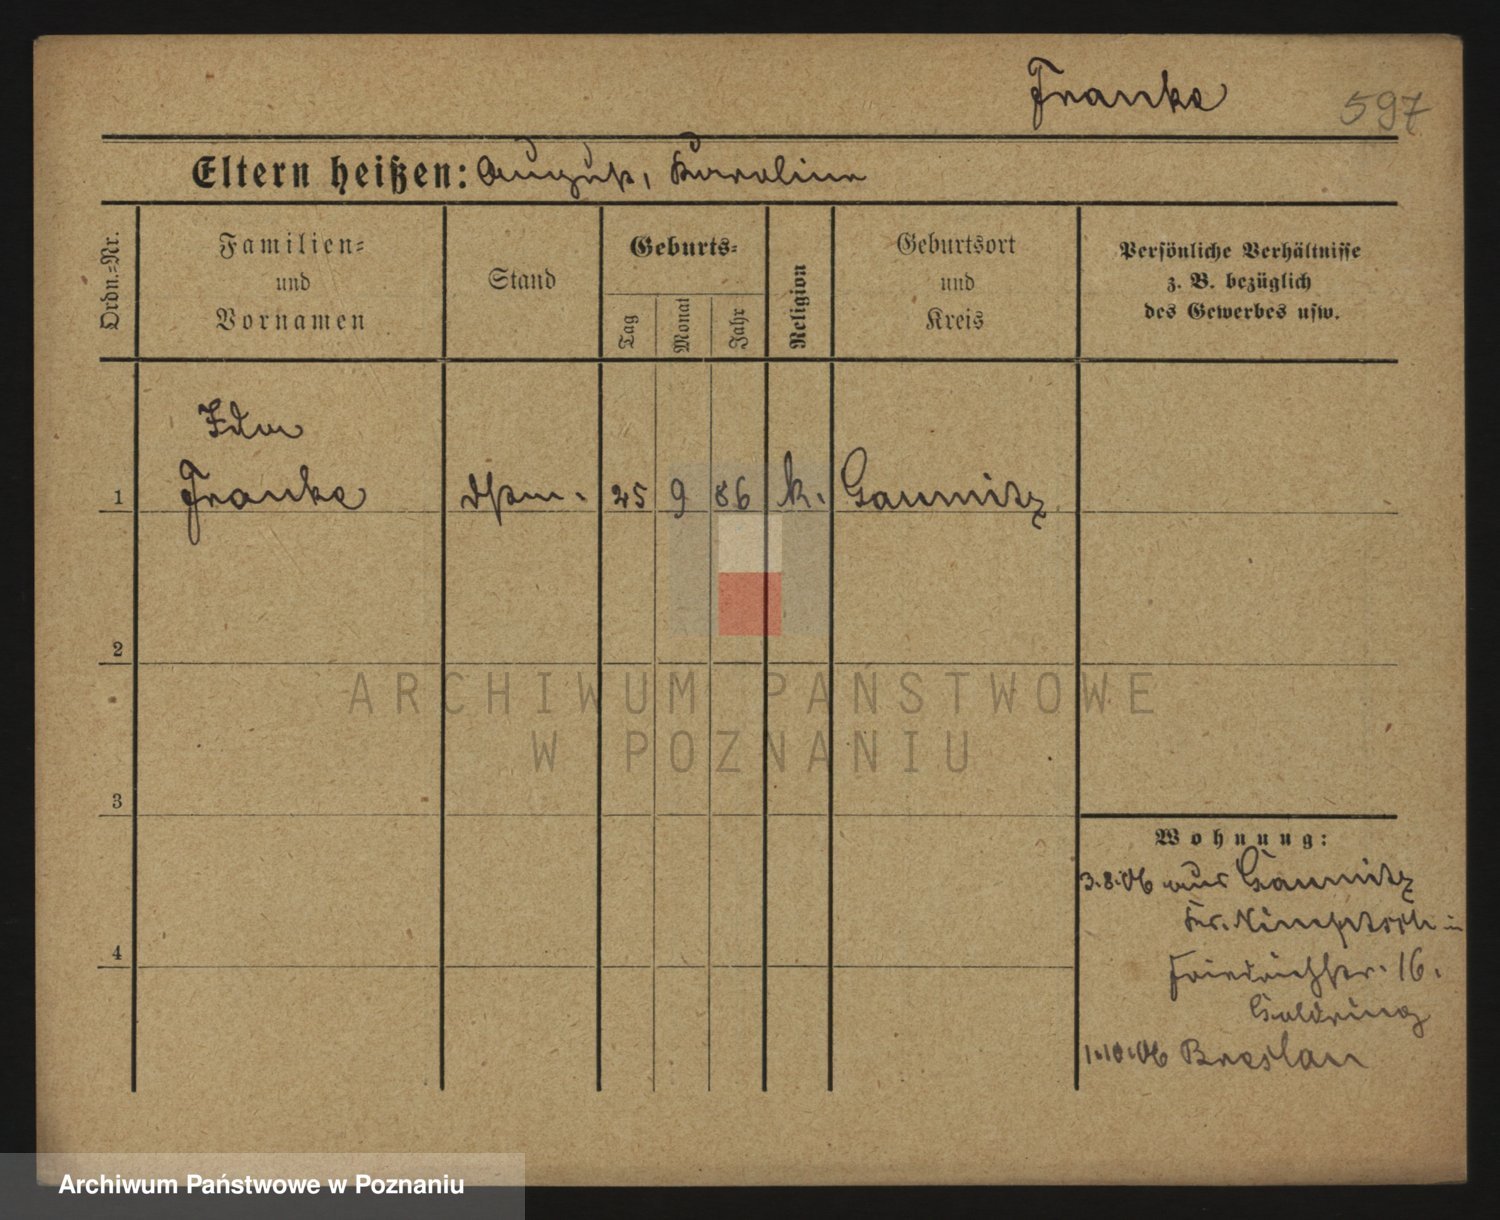 Franke
597
Eltern heißen: August, Karoline
Ordn.=Nr.
Familien=
und
Vornamen
Stand
Geburts=
Tag
Monat
Jahr
Religion
Geburtsort
und
Kreis
Persönliche Verhältnisse
z. B. bezüglich
des Gewerbes usw.
Ida
1 Franke 25 9 86 k. Gaumitz
2
ARCHIWUM PAŃSTWOWE
W POZNANIU
3
Wohnung:
3.8.06 aus Gaumitz
Kr. Nimptsch in
Friedrichstr. 16.
Goldring
4
1.10.06 Breslau
Archiwum Państwowe w Poznaniu